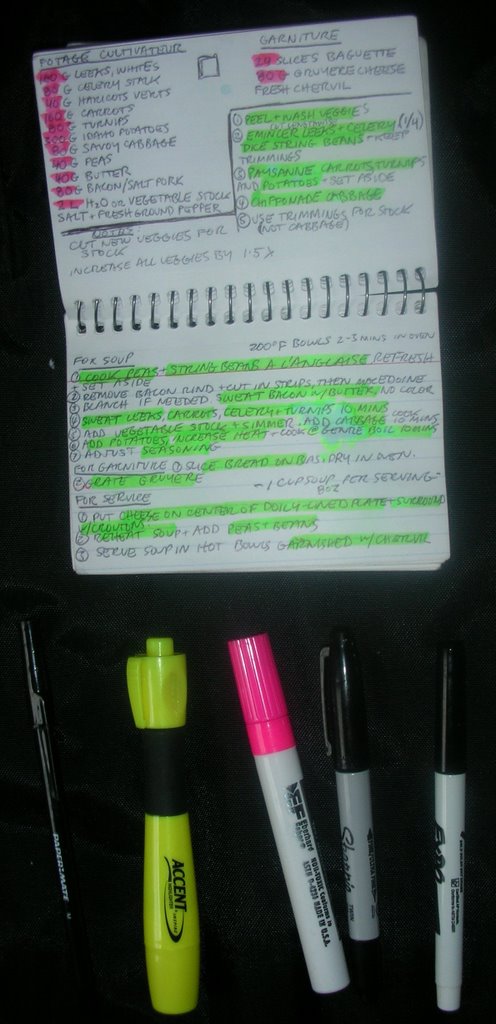 POTAGE CULTIVATEUR
G LEEKS, WHITES
80 G CELERY STALK
40 G HARICOTS VERTS
160 G CARROTS
80 G TURNIPS
G IDAHO POTATOES
80 G SAVOY CABBAGE
40 G PEAS
40 G BUTTER
80 G BACON/SALT PORK
2 L H2O OR VEGETABLE STOCK
SALT + FRESH GROUND PEPPER
CUT NEW VEGGIES FOR
STOCK
INCREASE ALL VEGGIES BY 1.5X
GARNITURE
20 SLICES BAGUETTE
80 G GRUYERE CHEESE
FRESH CHERVIL
① PEEL + WASH VEGGIES
② EMINCER LEEKS + CELERY (1/4)
DICE STRING BEANS - KEEP
TRIMMINGS
③ PAYSANNE CARROTS, TURNIPS
AND POTATOES - SET ASIDE
④ CHIFFONADE CABBAGE
⑤ USE TRIMMINGS FOR STOCK
(NOT CABBAGE)
FOR SOUP
200°F BOWLS 2-3 MINS IN OVEN
① COOK PEAS + STRING BEANS A L'ANGLAISE REFRESH
+ SET ASIDE
② REMOVE BACON RIND + CUT IN STRIPS, THEN MACEDOINE
③ BLANCH IF NEEDED. SWEAT BACON W/BUTTER, NO COLOR
④ SWEAT LEEKS, CARROTS, CELERY + TURNIPS 10 MINS
⑤ ADD VEGETABLE STOCK + SIMMER. ADD CABBAGE COOK 10 MINS
⑥ ADD POTATOES, INCREASE HEAT + COOK @ GENTLE BOIL 10 MINS
⑦ ADJUST SEASONING
FOR GARNITURE ① SLICE BREAD ON BIAS, DRY IN OVEN.
② GRATE GRUYERE
~ 1 CUP SOUP PER SERVING
8OZ
FOR SERVICE
① PUT CHEESE ON CENTER OF DOILY-LINED PLATE + SURROUND
W/CROUTONS
② REHEAT SOUP + ADD PEAS + BEANS
③ SERVE SOUP IN HOT BOWLS GARNISHED W/CHERVIL
PAPER:MATE
ACCENT
EF Eberhard
NON-TOXIC Conforms to
ASTM D-4236 MADE IN U.S.A.
Sharpie
EXPO